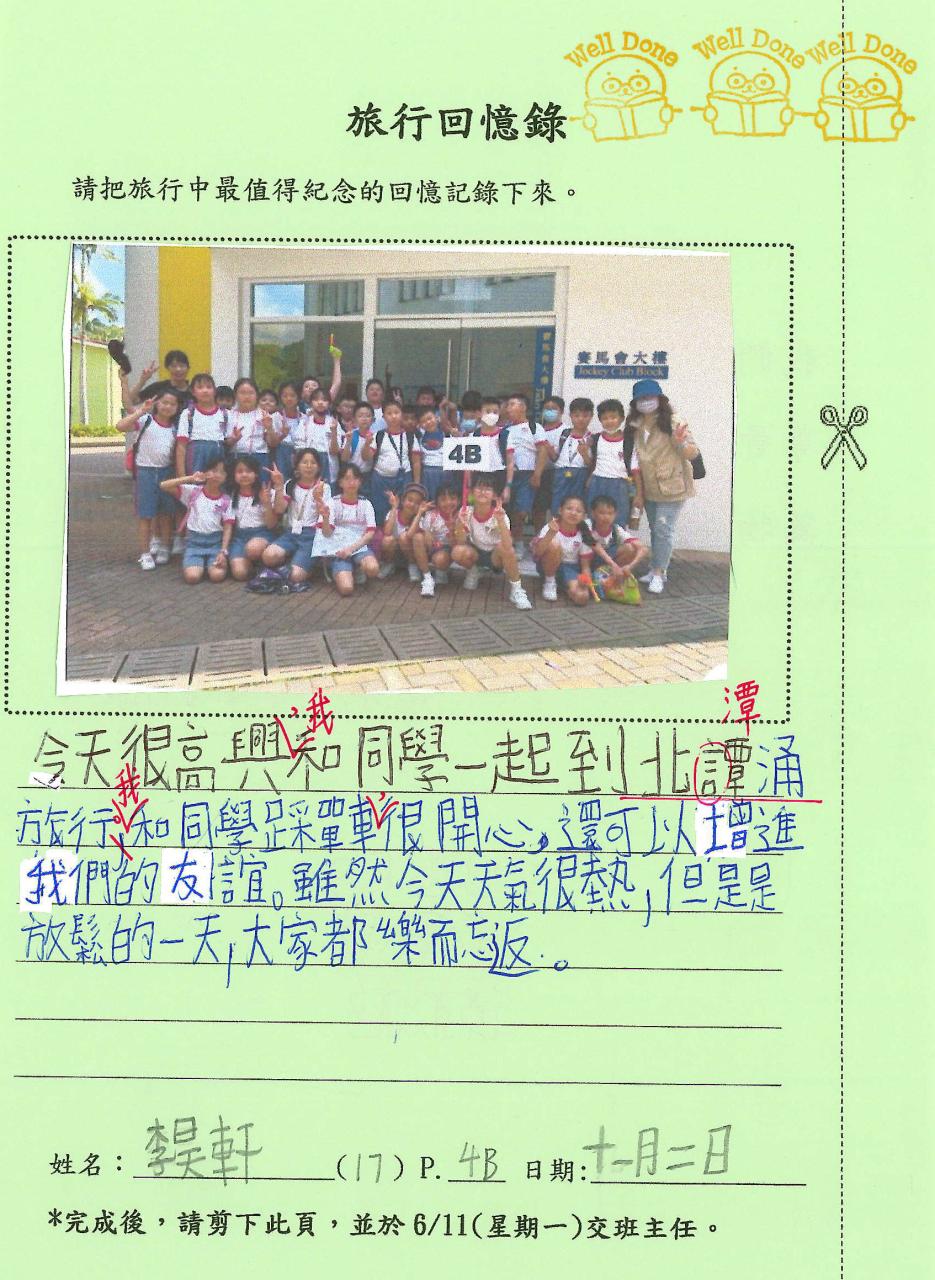 Well Done Well Done Well Done
旅行回憶錄
請把旅行中最值得紀念的回憶記錄下來。
賽馬會大樓
Jockey Club Block
4B
，我 潭
今天很高興和同學一起到北譚涌
我 ，
旅行,和同學踩單車很開心,還可以增進
我們的友誼。雖然今天天氣很熱,但是是
放鬆的一天,大家都樂而忘返。
姓名：李昊軒(17) P. 4B 日期:十一月二日
*完成後，請剪下此頁，並於 6/11(星期一)交班主任。